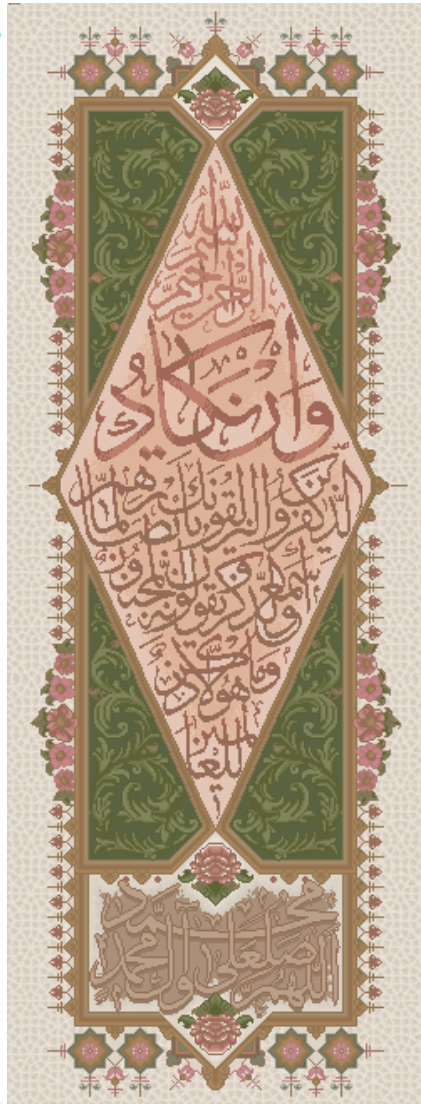 بسم الله
الرحمن الرحيم
وان يكاد
الذين كفروا ليزلقونك بابصارهم لما
سمعوا الذكر و يقولون انه لمجنون
وما هو الا ذكر
للعالمين
اللهم صل علی محمد و آل محمد